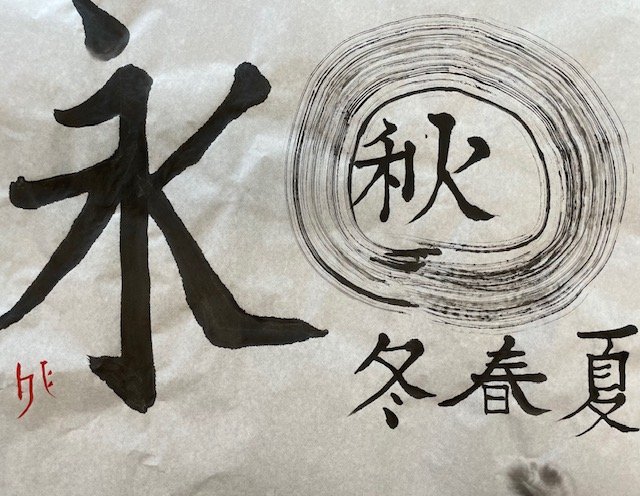 永
秋
冬春夏